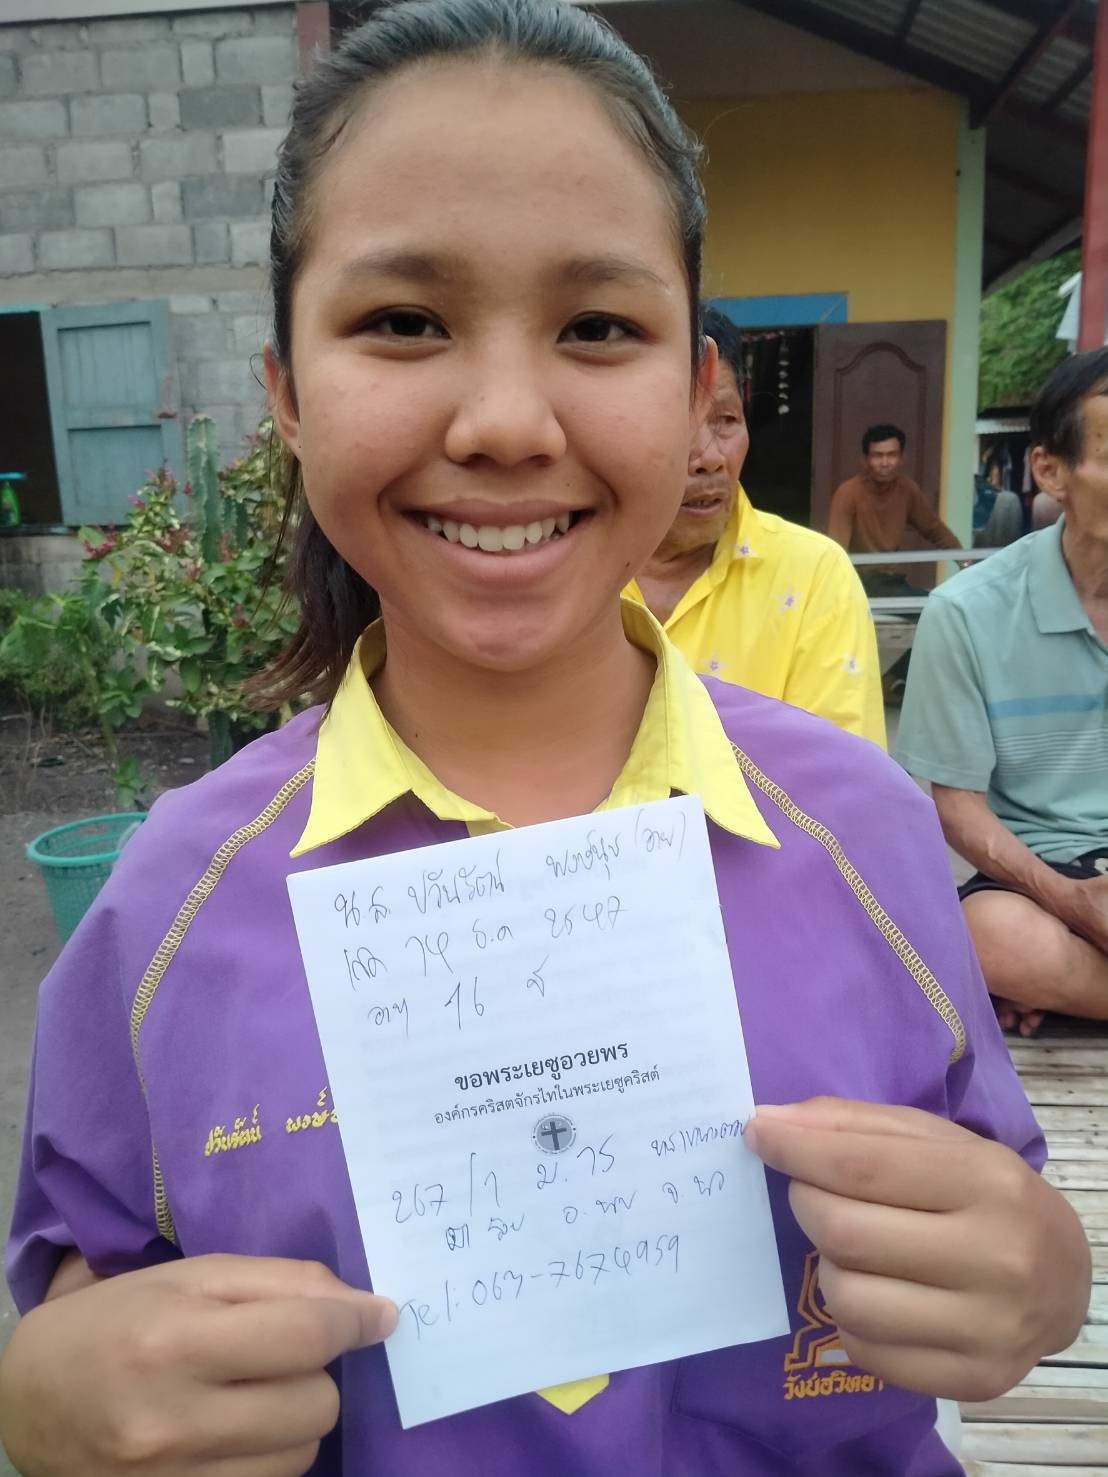 น.ส. ปวันรัตน์ พงษ์นุช (อาย)
เกิด 14 ธ.ค 2547
อายุ 16 ปี
ขอพระเยซูอวยพร
องค์กรคริสตจักรไทในพระเยซูคริสต์
267/1 ม.15
อ. จ.
Tel: 063-7674959
ปวันรัตน์ พงษ์
วังข่อยวิทยา